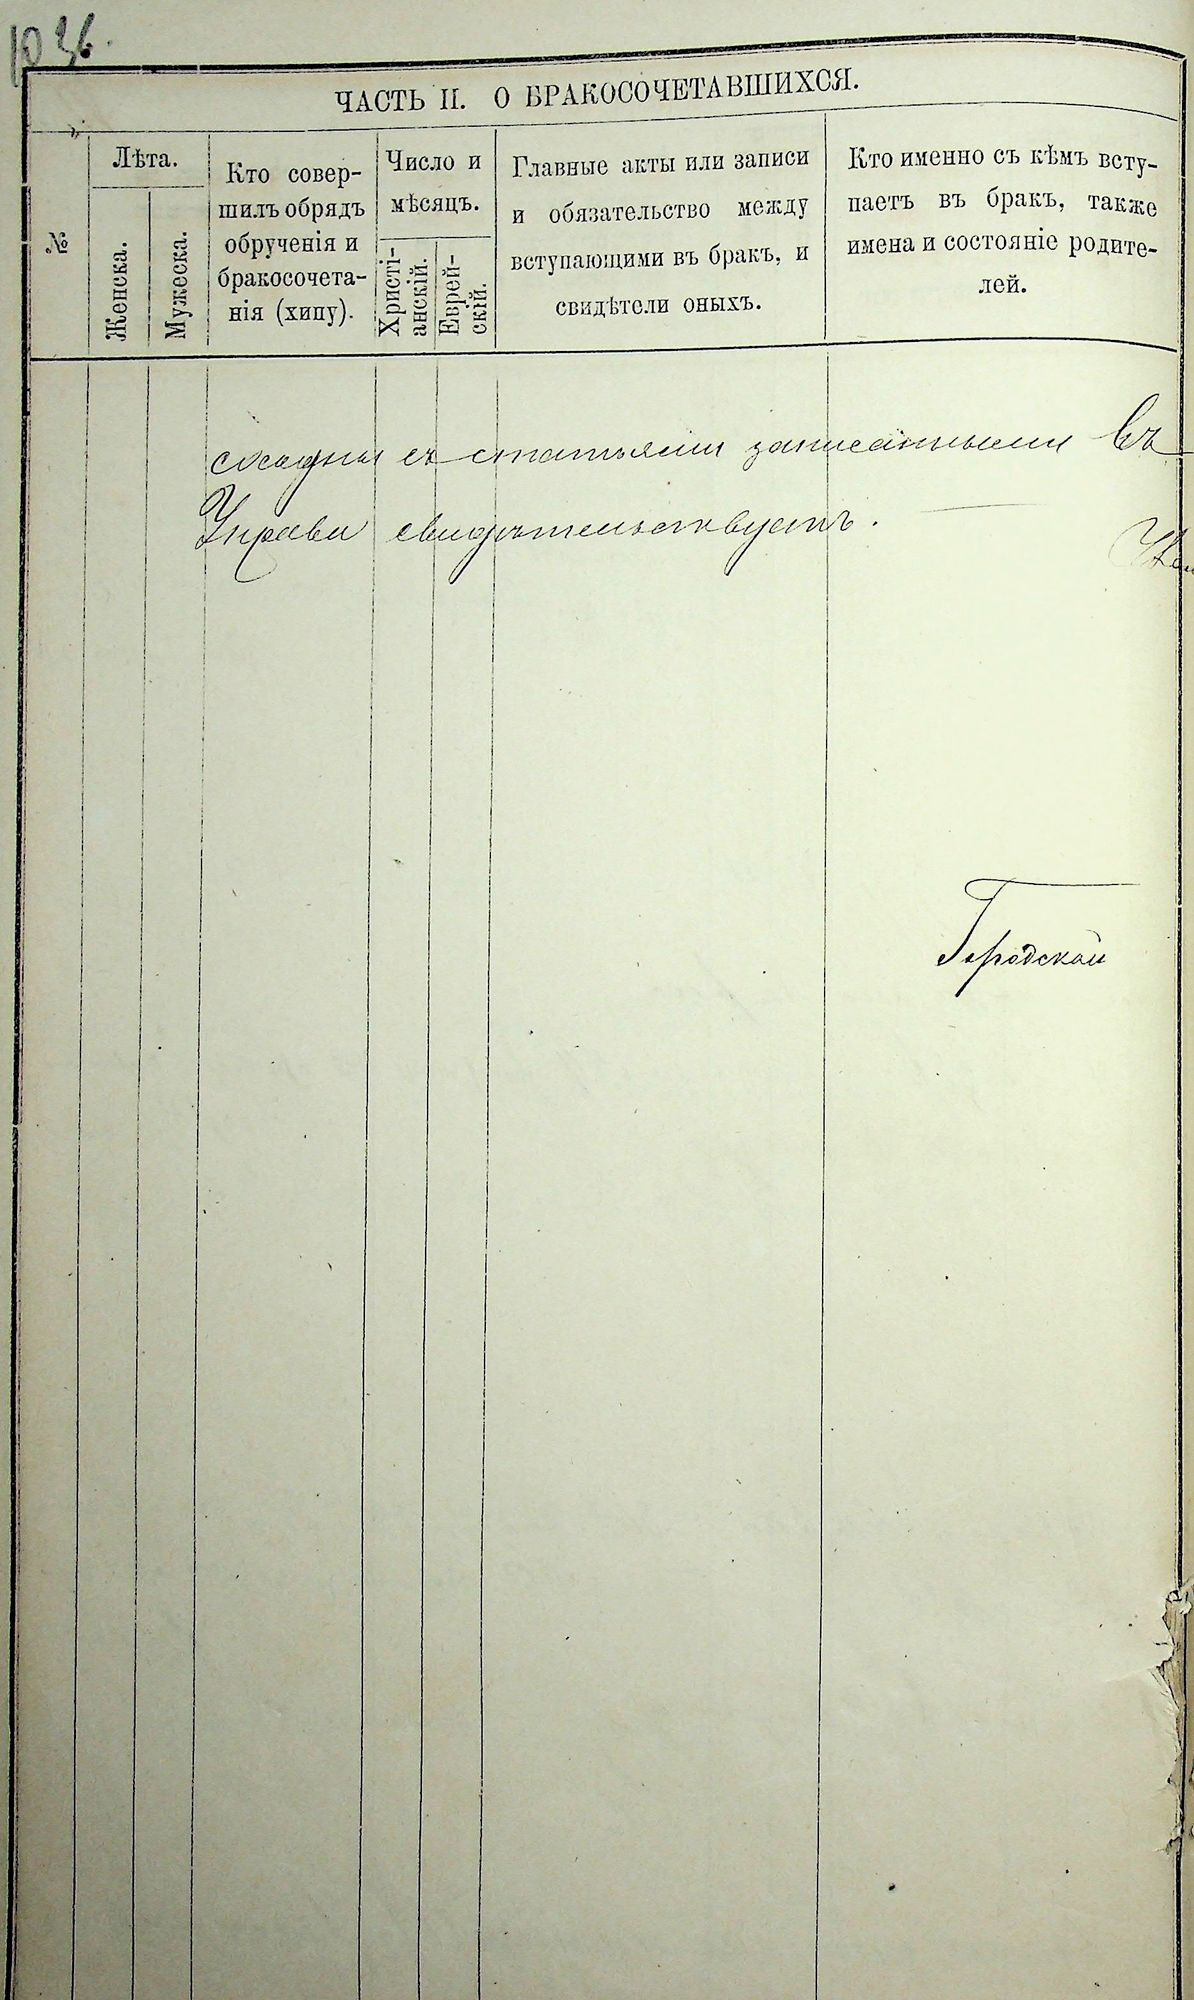 1036.
ЧАСТЬ II. О БРАКОСОЧЕТАВШИХСЯ.
№
Лѣта.
Женска.
Мужеска.
Кто совер-
шилъ обрядъ
обрученія и
бракосочета-
нія (хипу).
Число и
мѣсяцъ.
Христі-
анскій.
Еврей-
скій.
Главные акты или записи
и обязательство между
вступающими въ бракъ, и
свидѣтели оныхъ.
Кто именно съ кѣмъ всту-
паетъ въ бракъ, также
имена и состояніе родите-
лей.
сходны съ статьями записанными въ
Управы свидѣтельствуетъ.
Городской